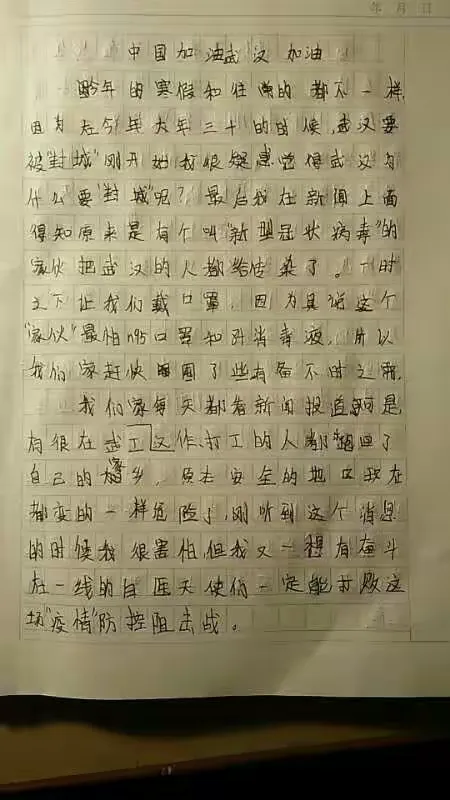 年 月 日
中国加油武汉加油
今年的寒假和往常的都不一样,
因为在今年大年三十的时候,武汉要
被"封城"刚开始我很疑惑觉得武汉为
什么要"封城"呢?最后我在新闻上面
得知原来是有个叫"新型冠状病毒"的
家伙把武汉的人都给传染了。一时
之下让我们戴口罩,因为具说这个
"家伙"最怕n95口罩和 消毒液,所以
我们家赶快 囤了些有备不时之需
我们家每天都看新闻报道 可是
有很在武 汉工作、打工的人都 回了
自己的 家乡,原去安全的地 现在
都变的一样危险了,刚听到这个消息
的时候我很害怕,但我又一想有奋斗
在一线的白衣天使们一定能打败这
场"疫情"防控阻击战。